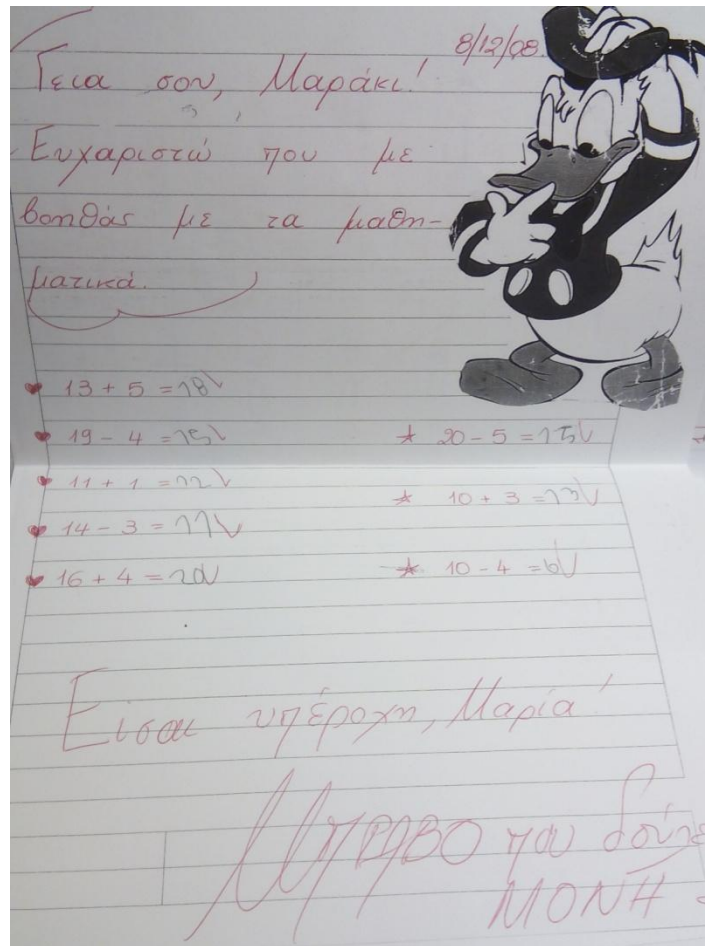 8/12/08
Γεια σου, Μαράκι!
Ευχαριστώ που με
βοηθάς με τα μαθη-
ματικά.
13 + 5 = 18
19 - 4 = 15
★ 20 - 5 = 15
11 + 1 = 12
★ 10 + 3 = 13
14 - 3 = 11
16 + 4 = 20
★ 10 - 4 = 6
Είσαι υπέροχη, Μαρία!
ΜΠΡΑΒΟ που
ΜΟΝΗ